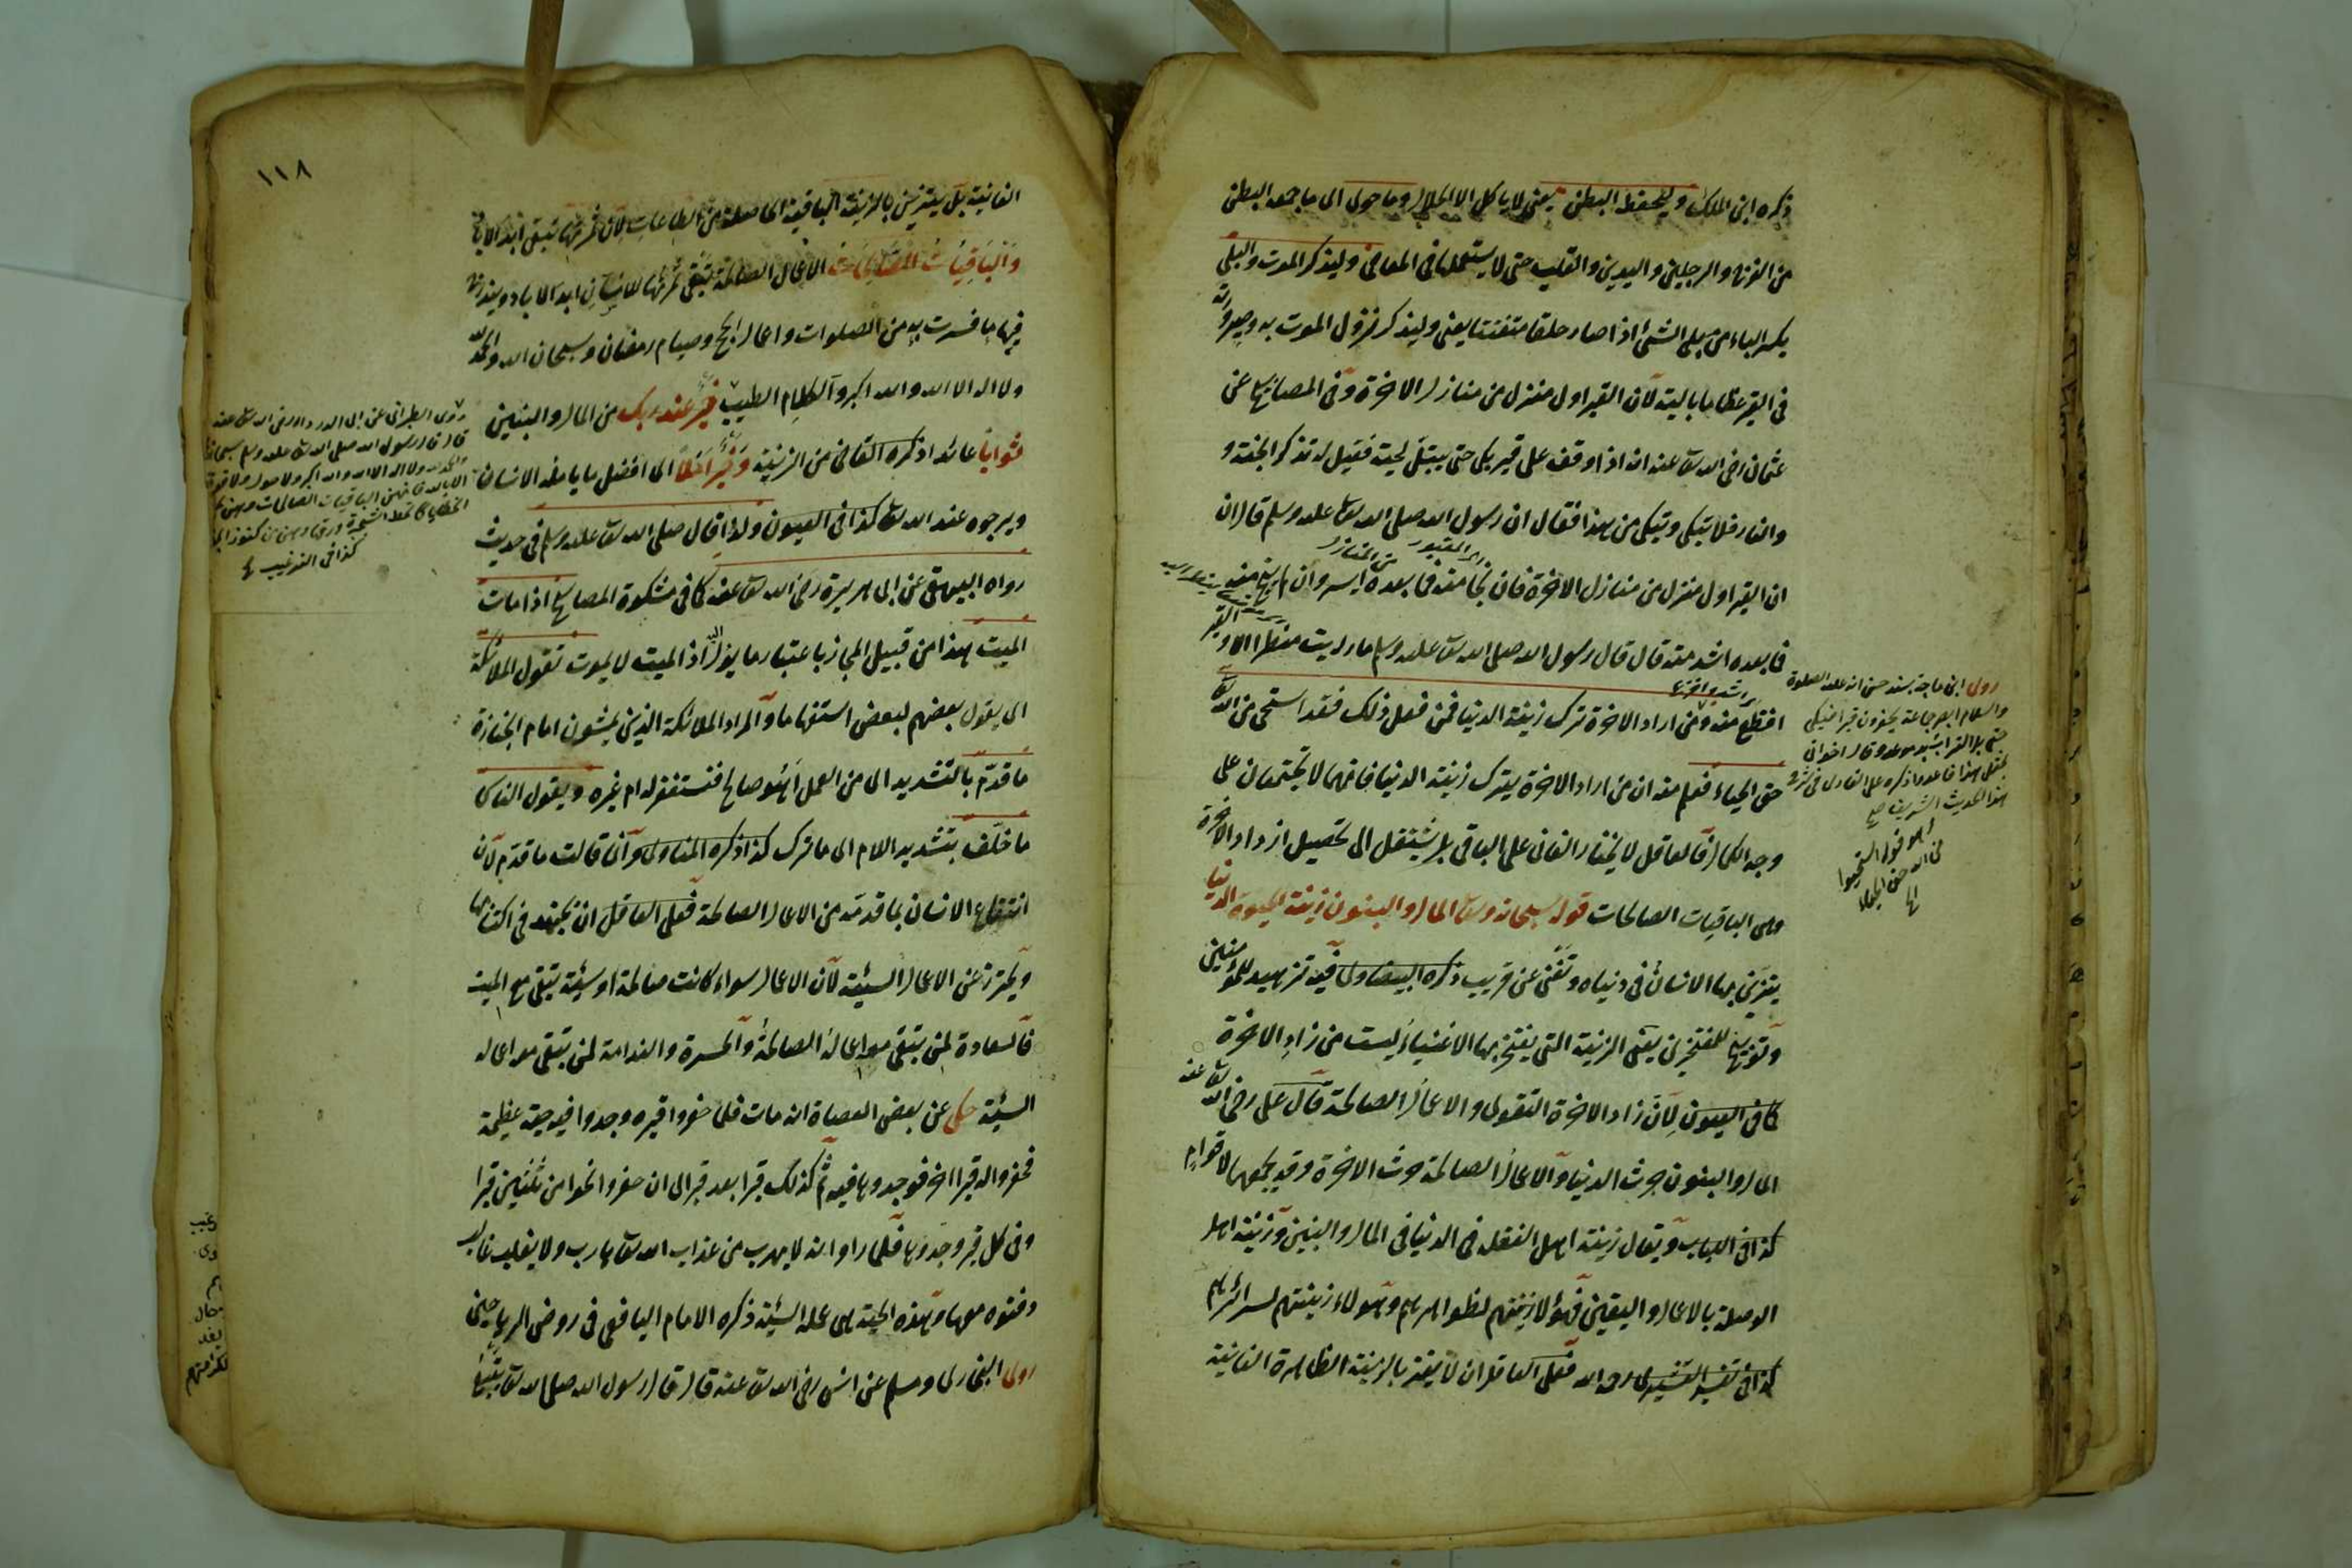 ذكره ابن الملك وليحفظ البطن يعني لا يأكل الا الحلال وما حوى اى ما جمعه البطن
من الفرج والرجلين واليدين والقلب حتى لا يستعملها في المعاصي وليذكر الموت والبلى
بكسر الباء من بلى الشئ اذا صار خلقا متفتتا يعني وليذكر نزول الموت به وصيرورته
في القبر عظاما بالية لان القبر اول منزل من منازل الاخرة وفي المصابيح عن
عثمان رضى الله تعالى عنه انه اذا وقف على قبر بكى حتى يبتل لحيته فقيل له تذكر الجنة و
والنار فلا تبكى وتبكى من هذا فقال ان رسول الله صلى الله تعالى عليه وسلم قال ان
ان القبر اول منزل من منازل الاخرة فان نجا منه فما بعده ايسر وان لم ينج منه
فما بعده اشد منه قال قال رسول الله صلى الله تعالى عليه وسلم ما رايت منظرا الا و
افظع منه ومن اراد الاخرة ترك زينة الدنيا فمن فعل ذلك فقد استحى من الله
حق الحياء فعلم منه ان من اراد الاخرة يترك زينة الدنيا فانهما لا تجتمعان على
وجه الكمال فالعاقل لا يختار الفاني على الباقي بل يشتغل الى تحصيل ازدياد الاخرة
وهى الباقيات الصالحات قوله سبحانه وتعالى المال والبنون زينة الحيوة الدنيا
يتزين بها الانسان في دنياه وتفنى عن قريب ذكره البيضاوى فيه تزهيد للمؤمنين
وتوبيخ للمفتخرين يعني الزينة التى يفتخر بها الاغنياء ليست من زاد الاخرة
كما في العيون لان زاد الاخرة التقوى والاعمال الصالحة قال على رضى الله تعالى عنه
المال والبنون حرث الدنيا والاعمال الصالحة حرث الاخرة وقد يجمعهما لاقوام
كذا في اللباب ويقال زينة اهل الغفلة في الدنيا في المال والبنين وزينة اهل
الوصلة بالاعمال واليقين فهؤلاء زينتهم لظواهرهم وهؤلاء زينتهم لسرائرهم
كذا في تفسير القشيرى رحمه الله فعلى العاقل ان لا يغتر بالزينة الظاهرة الفانية
روى ابن ماجة بسند حسن انه عليه الصلوة
والسلام ابصر جماعة يحفرون قبرا فبكى
حتى بل الثرى بدموعه وقال اخوانى
لمثل هذا فاعدوا ذكره على القارى في شرح
هذا الحديث الشريف
١١٨
الفانية بل يتزين بالزينة الباقية الحاصلة من الطاعات لان ثمرتها تبقى ابد الاباد
والباقيات الصالحات الاعمال الصالحة تبقى ثمرتها للانسان ابد الاباد ويندرج
فيها ما فسرت به من الصلوات واعمال الحج وصيام رمضان وسبحان الله والحمد لله
ولا اله الا الله والله اكبر والكلام الطيب خير عند ربك من المال والبنين
ثوابا عائدا ذكره القاضى من الزينة وخير املا اى افضل ما يأمله الانسان
ويرجوه عند الله تعالى كذا في العيون ولذا قال صلى الله تعالى عليه وسلم في حديث
رواه البيهقى عن ابى هريرة رضى الله تعالى عنه كما في مشكوة المصابيح اذا مات
الميت هذا من قبيل المجاز باعتبار ما يؤل اليه اذ الميت لا يموت تقول الملائكة
اى يقول بعضهم لبعض استفهاما والمراد الملائكة الذين يمشون امام الجنازة
ما قدم بالتشديد اى من العمل أهو صالح فنستغفر له ام غيره ويقول الناس
ما خلف بتشديد اللام اى ما ترك كذا ذكره المناوى وانما قالت ما قدم لان
انتفاع الانسان بما قدمه من الاعمال الصالحة فعلى العاقل ان يجتهد في اكتسابها
ويحترز عن الاعمال السيئة لان الاعمال سواء كانت صالحة او سيئة تبقى مع الميت
فالسعادة لمن يبقى معه اعماله الصالحة والحسرة والندامة لمن يبقى معه اعماله
السيئة حكى عن بعض العصاة انه مات فلما حفروا قبره وجدوا فيه حية عظيمة
فحفروا له قبرا اخر فوجدوها فيه ثم كذلك قبرا بعد قبر الى ان حفروا نحوا من ثلثين قبرا
وفي كل قبر وجدوها فلما راوا انه لا يهرب من عذاب الله تعالى هارب ولا يغلب غالب
دفنوه معها وهذه الحية هى عمله السيئة ذكره الامام اليافعى في روض الرياحين
روى البخارى ومسلم عن انس رضى الله تعالى عنه قال قال رسول الله صلى الله تعالى
روى الطبرانى عن ابى الدرداء رضى الله تعالى عنه
قال قال رسول الله صلى الله تعالى عليه وسلم سبحان الله
والحمد لله ولا اله الا الله والله اكبر ولا حول ولا قوة
الا بالله فانهن الباقيات الصالحات وهن
الخطايا كما تحط الشجرة ورقها وهن من كنوز الجنة
كذا في الترغيب